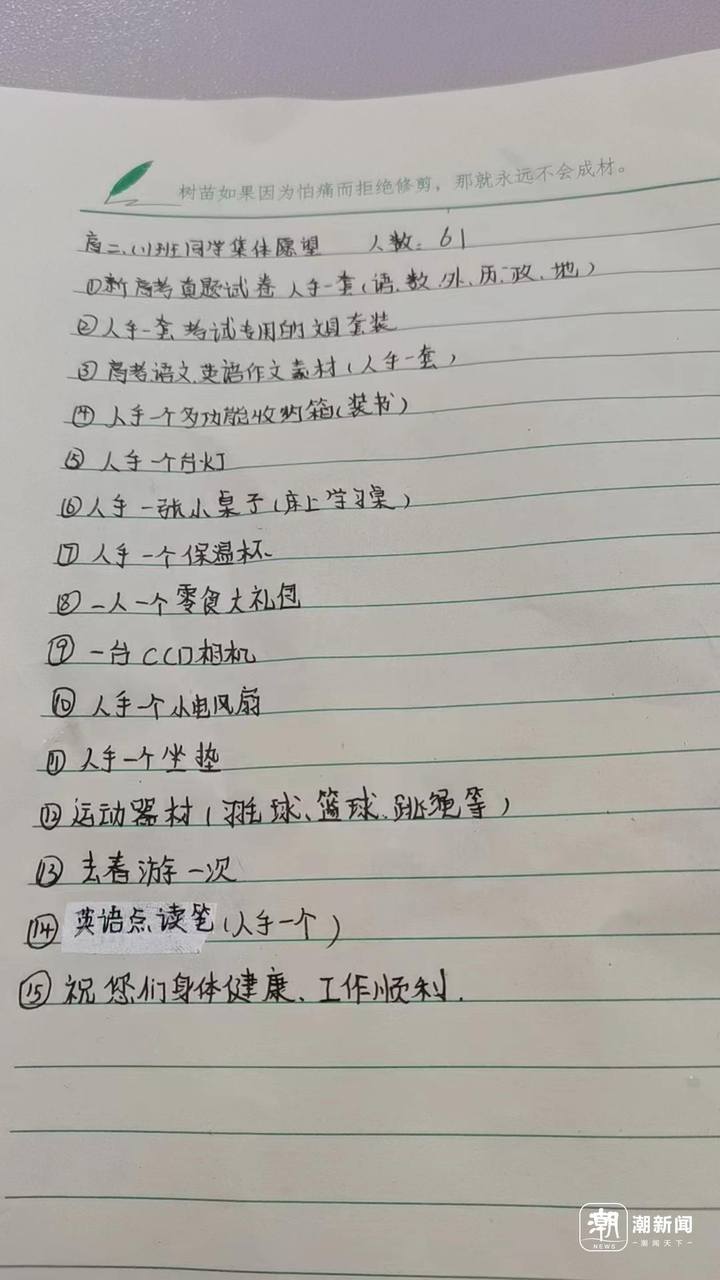 树苗如果因为怕痛而拒绝修剪，那就永远不会成材。
高二、(1)班同学集体愿望 人数：61
①新高考真题试卷 人手一套(语、数、外、历、政、地)
②人手一套考试专用的文具套装
③高考语文、英语作文素材(人手一套)
④人手一个多功能收纳箱(装书)
⑤人手一个台灯
⑥人手一张小桌子(床上学习桌)
⑦人手一个保温杯
⑧一人一个零食大礼包
⑨一台CCD相机
⑩人手一个小电风扇
⑪人手一个坐垫
⑫运动器材(羽毛球、篮球、跳绳等)
⑬去春游一次
⑭英语点读笔(人手一个)
⑮祝您们身体健康、工作顺利.
潮 NEWS 潮新闻
潮闻天下